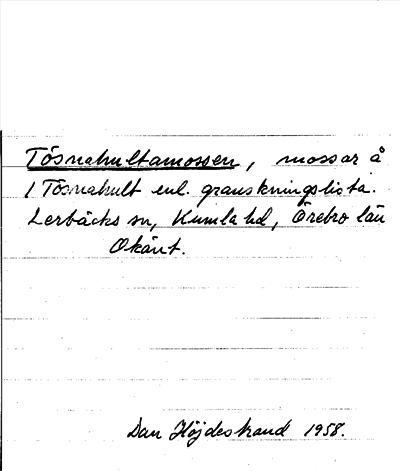 Tösnahultamossen, mossar å
1 Tösnahult enl. granskningslista.
Lerbäcks sn, Kumla hd, Örebro län
Okänt.
Dan Höjdestrand 1958.